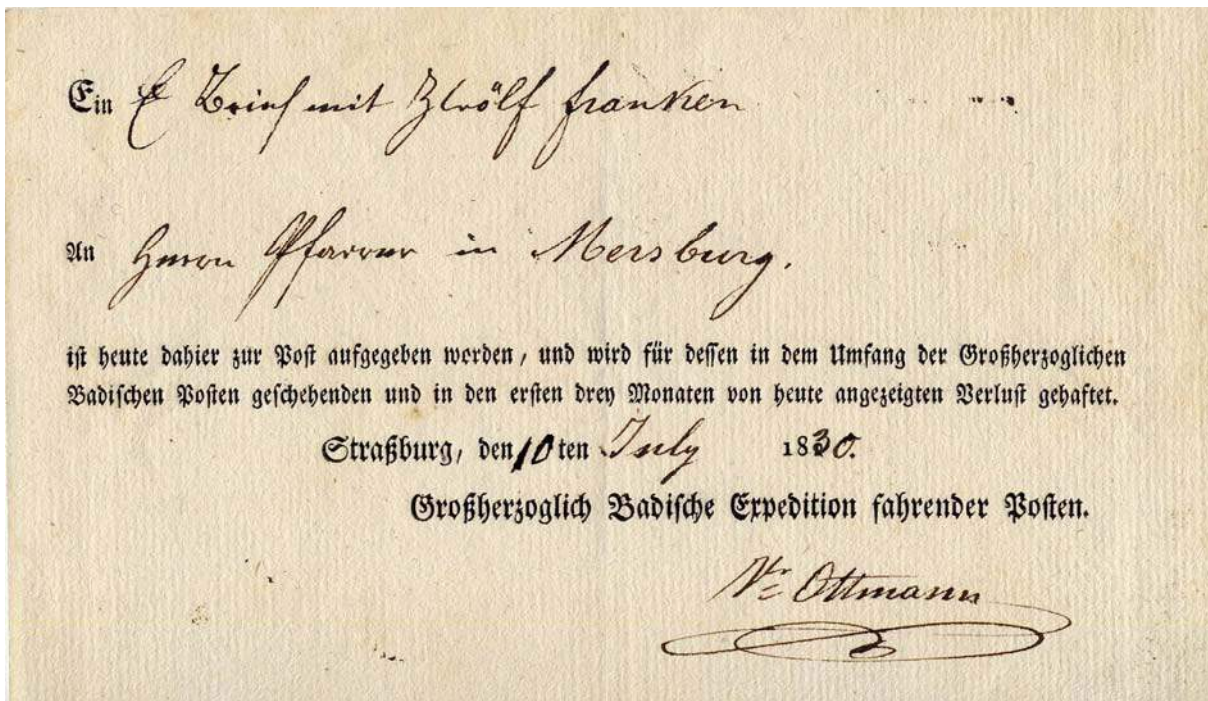 Ein Brief mit Zwölf franken
An Herrn Pfarrer in Mersburg.
ist heute dahier zur Post aufgegeben worden, und wird für dessen in dem Umfang der Großherzoglichen
Badischen Posten geschehenden und in den ersten drey Monaten von heute angezeigten Verlust gehaftet.
Straßburg, den 10ten July 1830.
Großherzoglich Badische Expedition fahrender Posten.
Ottmann